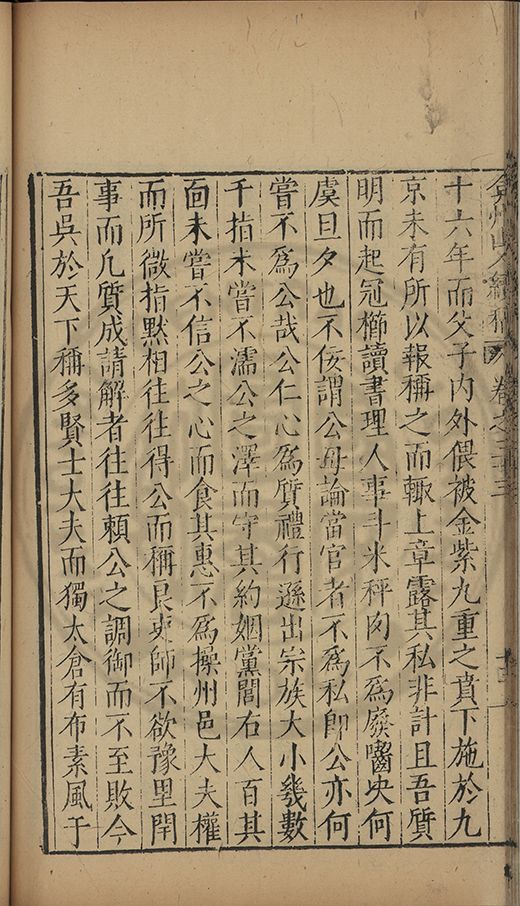 弇州山人續稿 卷之三十三 十二
十六年而父子內外偎被金紫九重之賁下施於九
京未有所以報稱之而輙上章露其私非計且吾質
明而起冠櫛讀書理人事斗米秤肉不為廢嚙決何
虞旦夕也不佞謂公毋論當官者不為私即公亦何
嘗不為公哉公仁心為質禮行遜出宗族大小幾數
千指未嘗不濡公之澤而守其約姻黨閭右人百其
面未嘗不信公之心而食其惠不為操州邑大夫權
而所微指黙相往往得公而稱良吏師不欲豫里閈
事而凢質成請解者往往頼公之調御而不至敗今
吾吳於天下稱多賢士大夫而獨太倉有布素風于